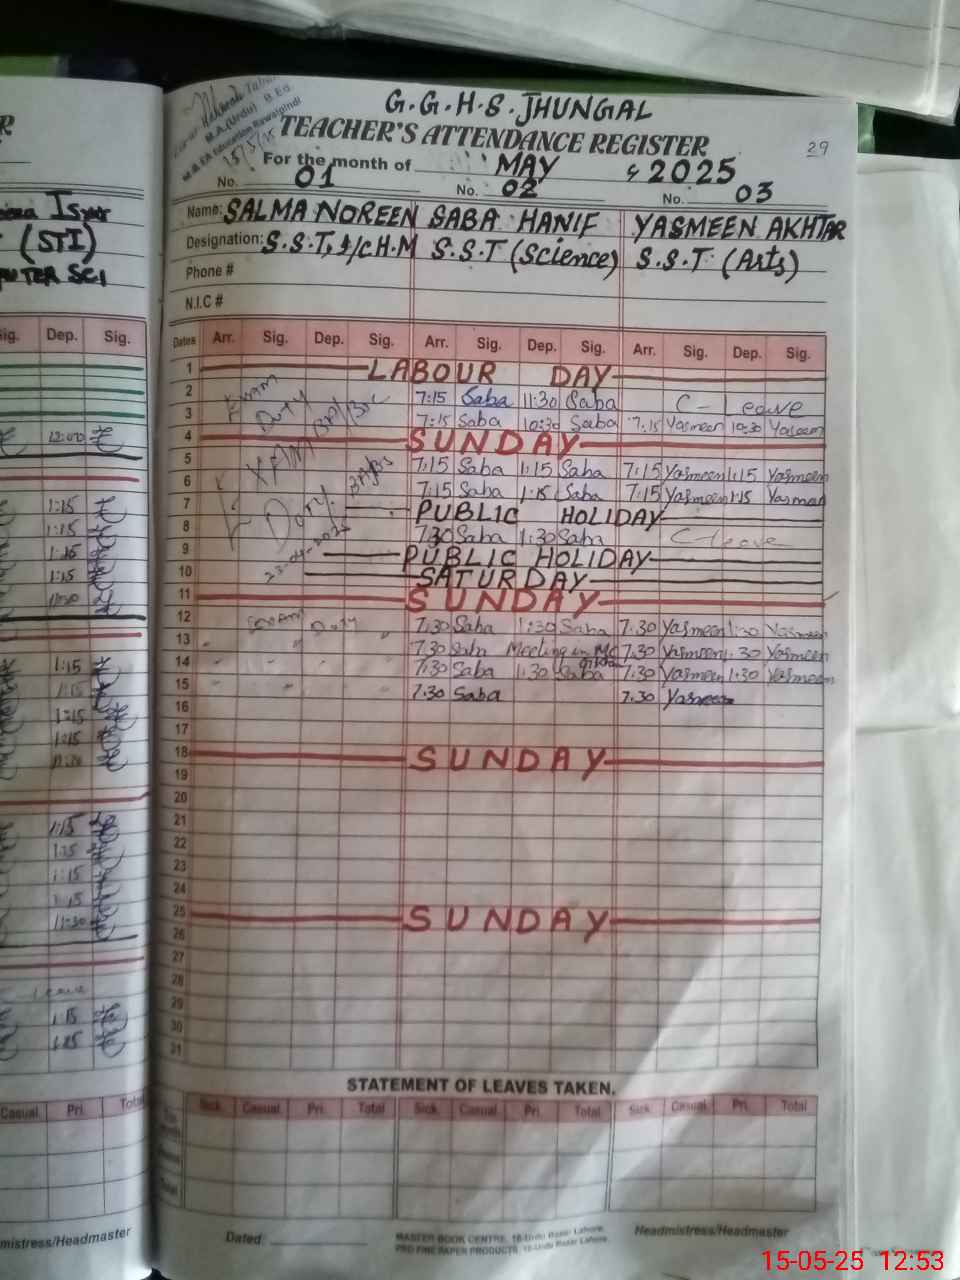 G.G.H.S. JHUNGAL
M.A.(Urdu) B.Ed
M.A EA Education Rawalpindi
15/5/25
TEACHER'S ATTENDANCE REGISTER
29
For the month of MAY 2025
No. 01 No. 02 No. 03
Name: SALMA NOREEN SABA HANIF YASMEEN AKHTAR
Designation: S.S.T, I/CH.M S.S.T (Science) S.S.T (Arts)
Phone #
N.I.C #
Dates Arr. Sig. Dep. Sig. Arr. Sig. Dep. Sig. Arr. Sig. Dep. Sig.
1 LABOUR DAY
2 EXAM 7:15 Saba 11:30 Saba C-Leave
3 Duty 7:15 Saba 10:30 Saba 7:15 Yasmeen 10:30 Yasmeen
4 SUNDAY
5 EXAM 7:15 Saba 1:15 Saba 7:15 Yasmeen 1:15 Yasmeen
6 Duty 7:15 Saba 1:15 Saba 7:15 Yasmeen 1:15 Yasmeen
7 PUBLIC HOLIDAY
8 7:30 Saba 1:30 Saba C-leave
9 PUBLIC HOLIDAY
10 SATURDAY
11 SUNDAY
12 Exam Duty 7:30 Saba 1:30 Saba 7:30 Yasmeen 1:30 Yasmeen
13 " " " 7:30 Saba Meeting in 7:30 Yasmeen 1:30 Yasmeen
14 " " " " 7:30 Saba 1:30 Saba 7:30 Yasmeen 1:30 Yasmeen
15 " " " " 7:30 Saba 7:30 Yasmeen
16
17
18 SUNDAY
19
20
21
22
23
24
25 SUNDAY
26
27
28
29
30
31
STATEMENT OF LEAVES TAKEN.
Sick. Casual. Pri. Total Sick. Casual. Pri. Total Sick. Casual. Pri. Total
Total
Dated
MASTER BOOK CENTRE, 16-Urdu Bazar Lahore.
PRO FINE PAPER PRODUCTS, 16-Urdu Bazar Lahore.
Headmistress/Headmaster
(STI)
Sig. Dep. Sig.
12:00
1:15
1:15
1:15
1:15
11:30
1:15
1:15
1:15
1:15
11:30
1:15
1:15
1:15
1:15
11:30
Leave
1:15
1:15
Casual Pri. Total
mistress/Headmaster
15-05-25 12:53